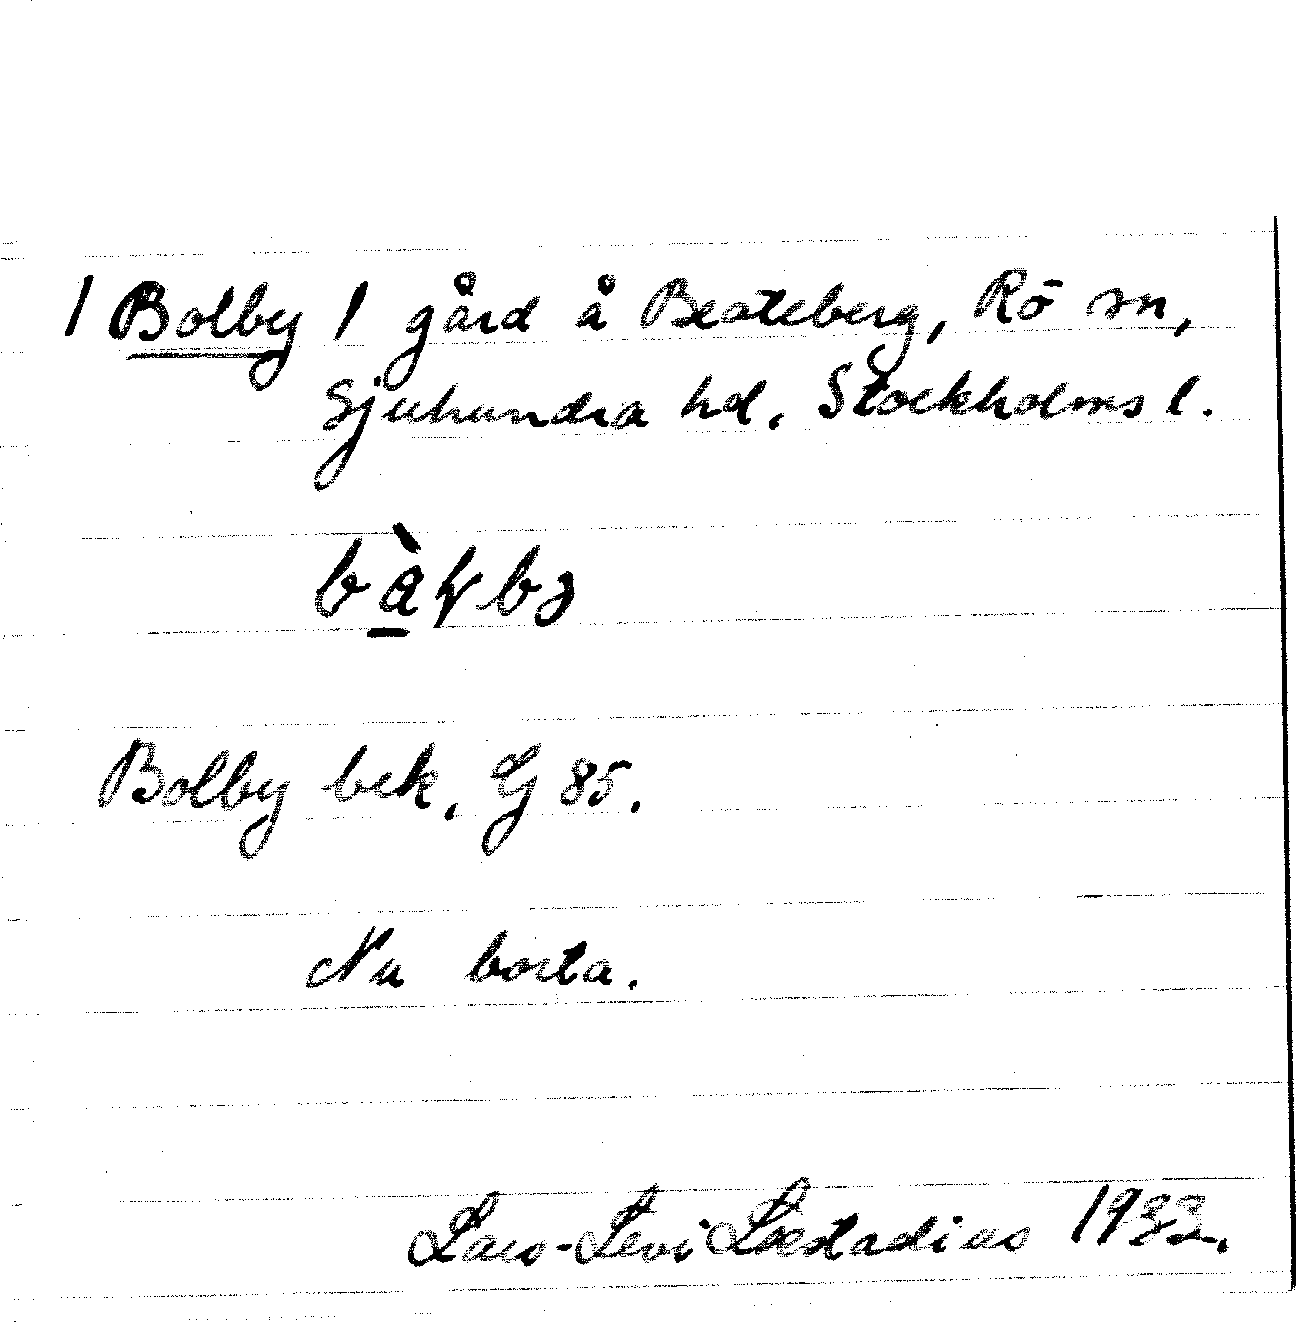 1 Bolby 1 gård å Beateberg, Rö sn,
Sjuhundra hd. Stockholms l.
Bolby bek. G 85.
Nu borta.
Lars-Levi Læstadius 1933.